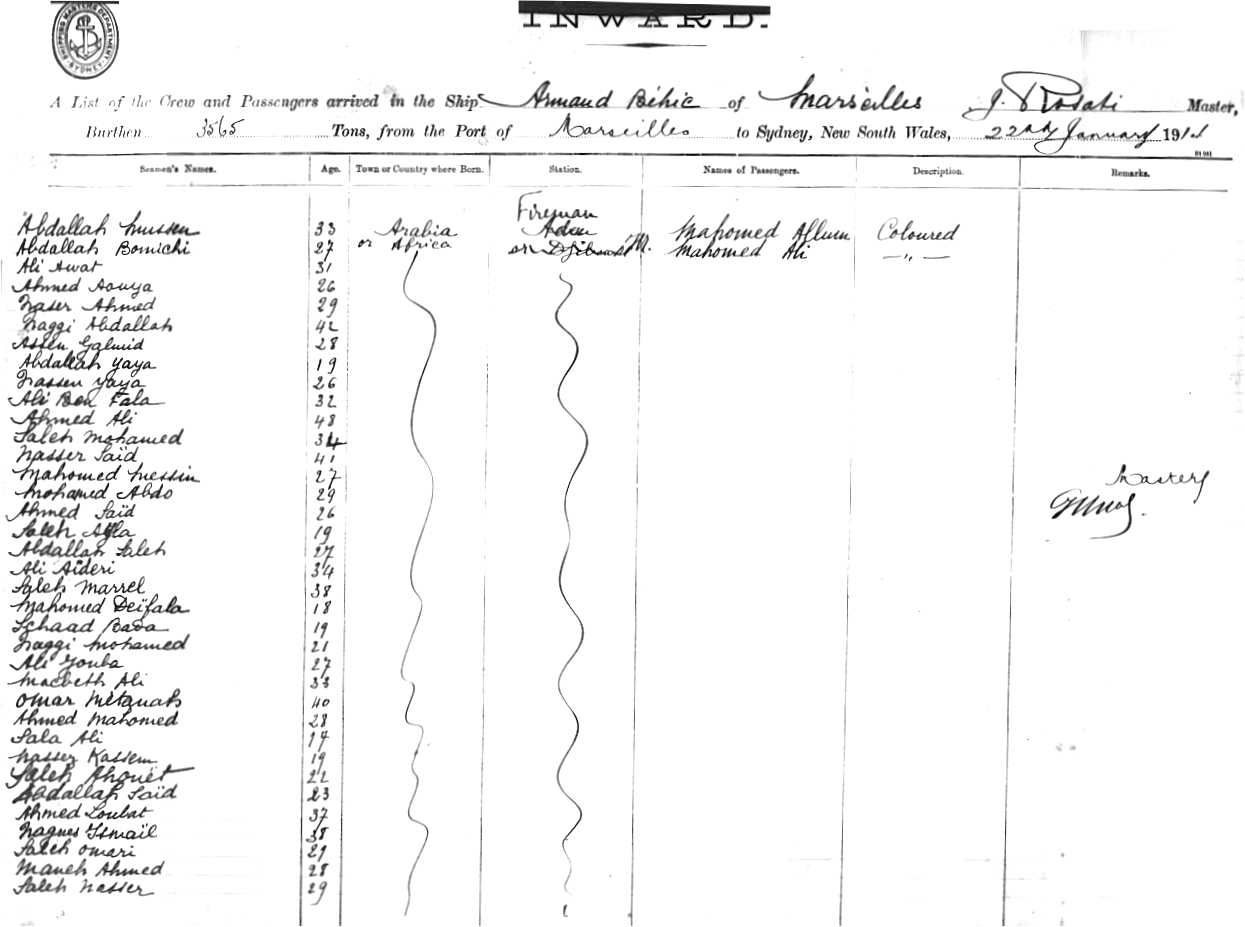 SHIPPING MASTERS DEPARTMENT SYDNEY
INWARD.
A List of the Crew and Passengers arrived in the Ship Armand Béhic of Marseilles J. Rosati Master,
Burthen 3565 Tons, from the Port of Marseilles to Sydney, New South Wales, 22nd January 191
Seamen's Names. Age. Town or Country where Born. Station. Names of Passengers. Description. Remarks.
Fireman
Abdallah Mussen 33 Arabia Aden Mahomed Allum Coloured
Abdallah Bomichi 27 or Africa or Djibouti M. Mahomed Ali — " —
Ali Awat 31
Ahmed Aouya 26
Naser Ahmed 29
Naggi Abdallah 42
Assen Galmid 28
Abdallah Yaya 19
Nassen Yaya 26
Ali Ben Fala 32
Ahmed Ali 48
Saleh Mohamed 34
Nasser Saïd 41
Mahomed Messin 27
Mohamed Abdo 29
Ahmed Saïd 26
Saleh 19
Abdallah Saleh 27
Ali Aïderi 34
Saleh Marrel 38
Mahomed Deïfala 18
Schaad Bava 19
Naggi Mohamed 21
Ali Gouba 27
Macbeth Ali 33
Omar Metanah 40
Ahmed Mahomed 28
Sala Ali 17
Nasser Kassem 19
Saleh Ahouet 22
Abdallah Saïd 23
Ahmed Loubat 37
Nagues Ismaïl 38
Saleh Omari 29
Maneh Ahmed 28
Saleh Nasser 29
Master